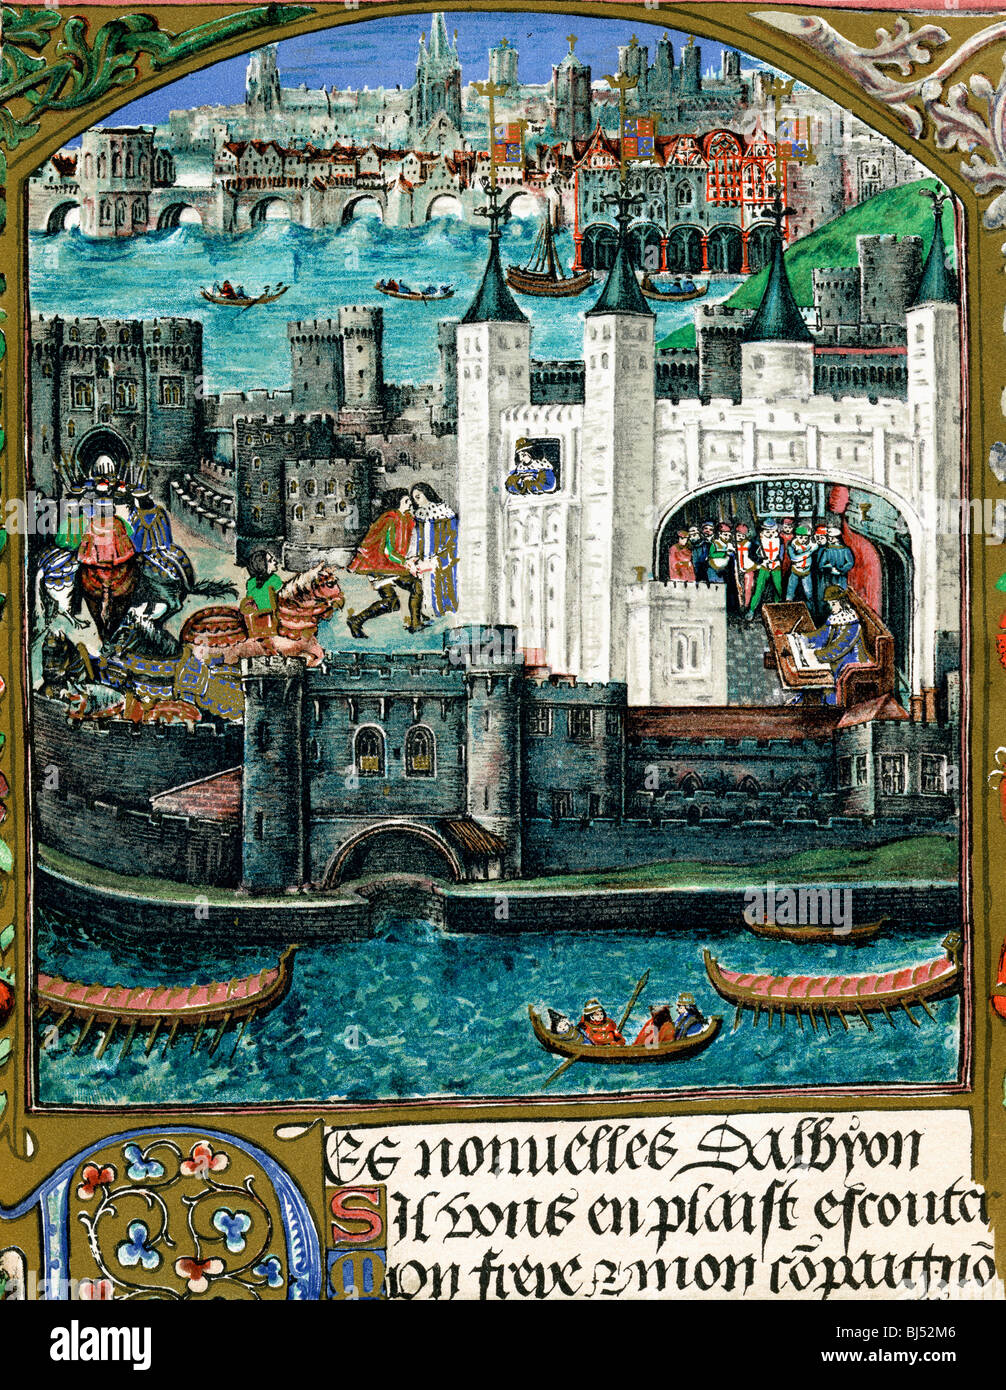 Es nonuelles Dalbyon
Sil vous en plaist escoute
Mon frere & mon cõpaitnõ
alamy
Image ID: BJ52M6
www.alamy.com